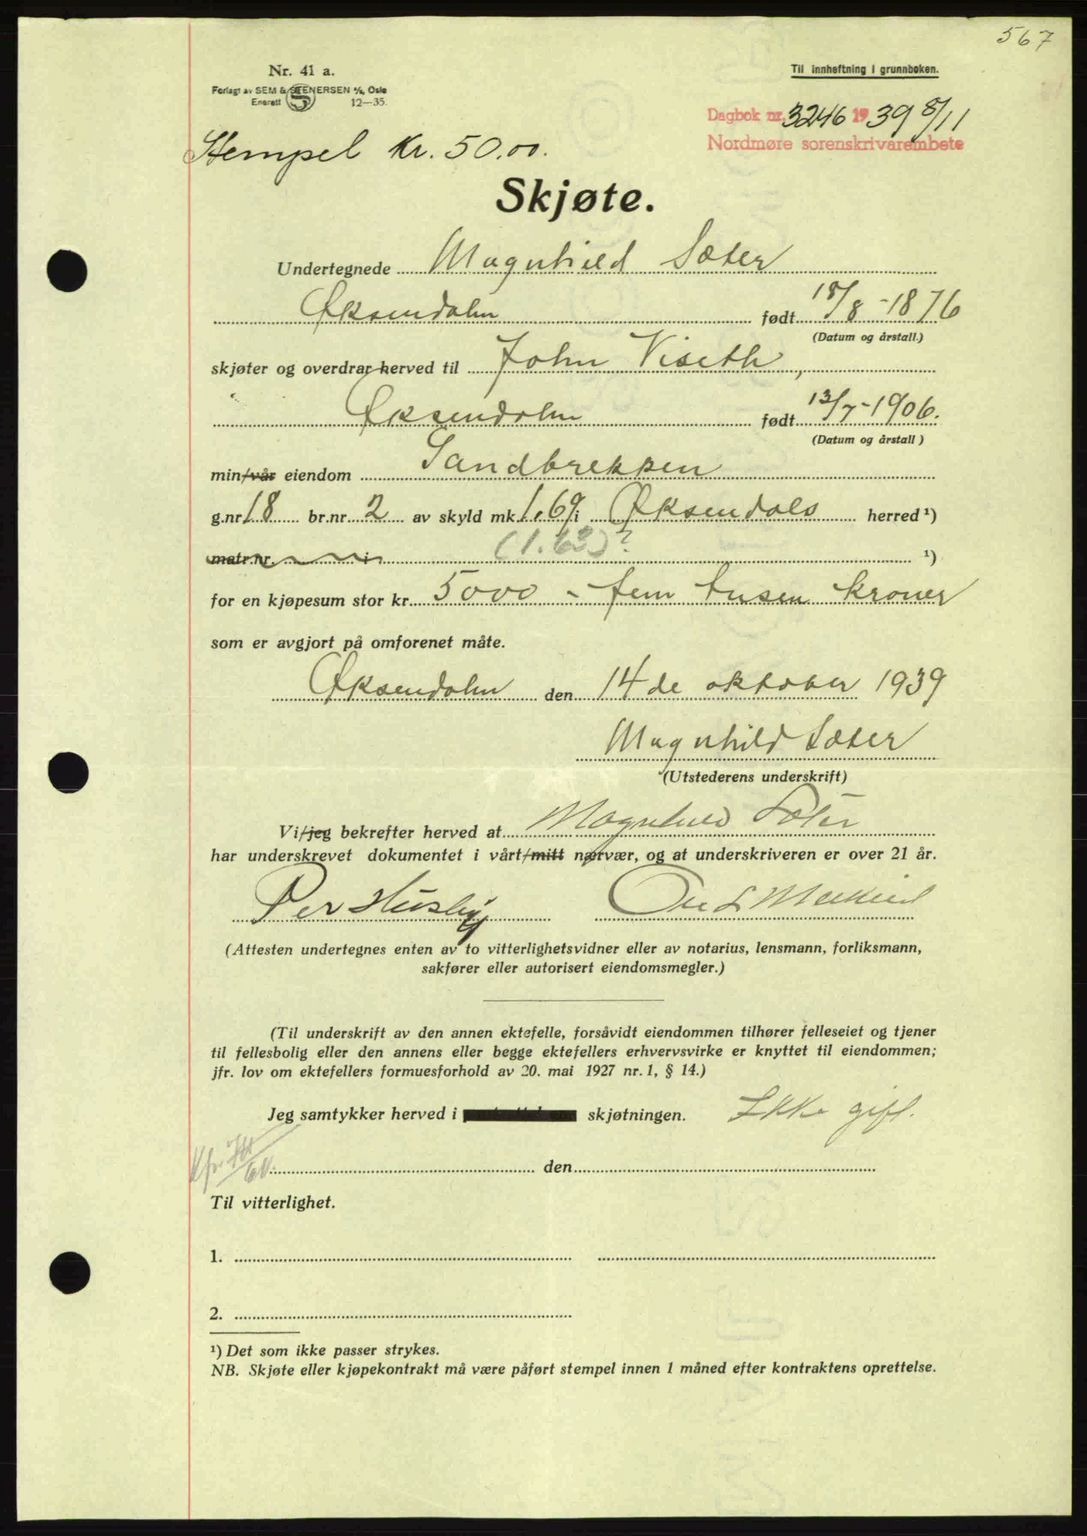 567
Nr. 41 a.
Forlagt av SEM & STENERSEN A/S, Oslo
Enerett 12—35.
Til innheftning i grunnboken.
Dagbok nr. 3246 1939 8/11
Nordmøre sorenskrivarembete
Stempel kr. 50.00.
Skjøte.
Undertegnede Magnhild Sæter
Øksendalen født 18/8-1876
(Datum og årstall.)
skjøter og overdrar herved til John Viseth,
Øksendalen født 13/7-1906.
(Datum og årstall)
min/vår eiendom Sandbrekken
g.nr 18 br.nr 2 av skyld mk 1.69 i Øksendals herred ¹)
matr.nr. i (1.63)? ¹)
for en kjøpesum stor kr. 5000 - fem tusen kroner
som er avgjort på omforenet måte.
Øksendalen den 14 de oktober 1939
Magnhild Sæter
(Utstederens underskrift)
Vi/jeg bekrefter herved at Magnhild Sæter
har underskrevet dokumentet i vårt/mitt nærvær, og at underskriveren er over 21 år.
Per Husby
(Attesten undertegnes enten av to vitterlighetsvidner eller av notarius, lensmann, forliksmann,
sakfører eller autorisert eiendomsmegler.)
(Til underskrift av den annen ektefelle, forsåvidt eiendommen tilhører felleseiet og tjener
til fellesbolig eller den annens eller begge ektefellers erhvervsvirke er knyttet til eiendommen;
jfr. lov om ektefellers formuesforhold av 20. mai 1927 nr. 1, § 14.)
Jeg samtykker herved i skjøtningen. Ikke gift.
den
Til vitterlighet.
1.
2.
¹) Det som ikke passer strykes.
NB. Skjøte eller kjøpekontrakt må være påført stempel innen 1 måned efter kontraktens oprettelse.